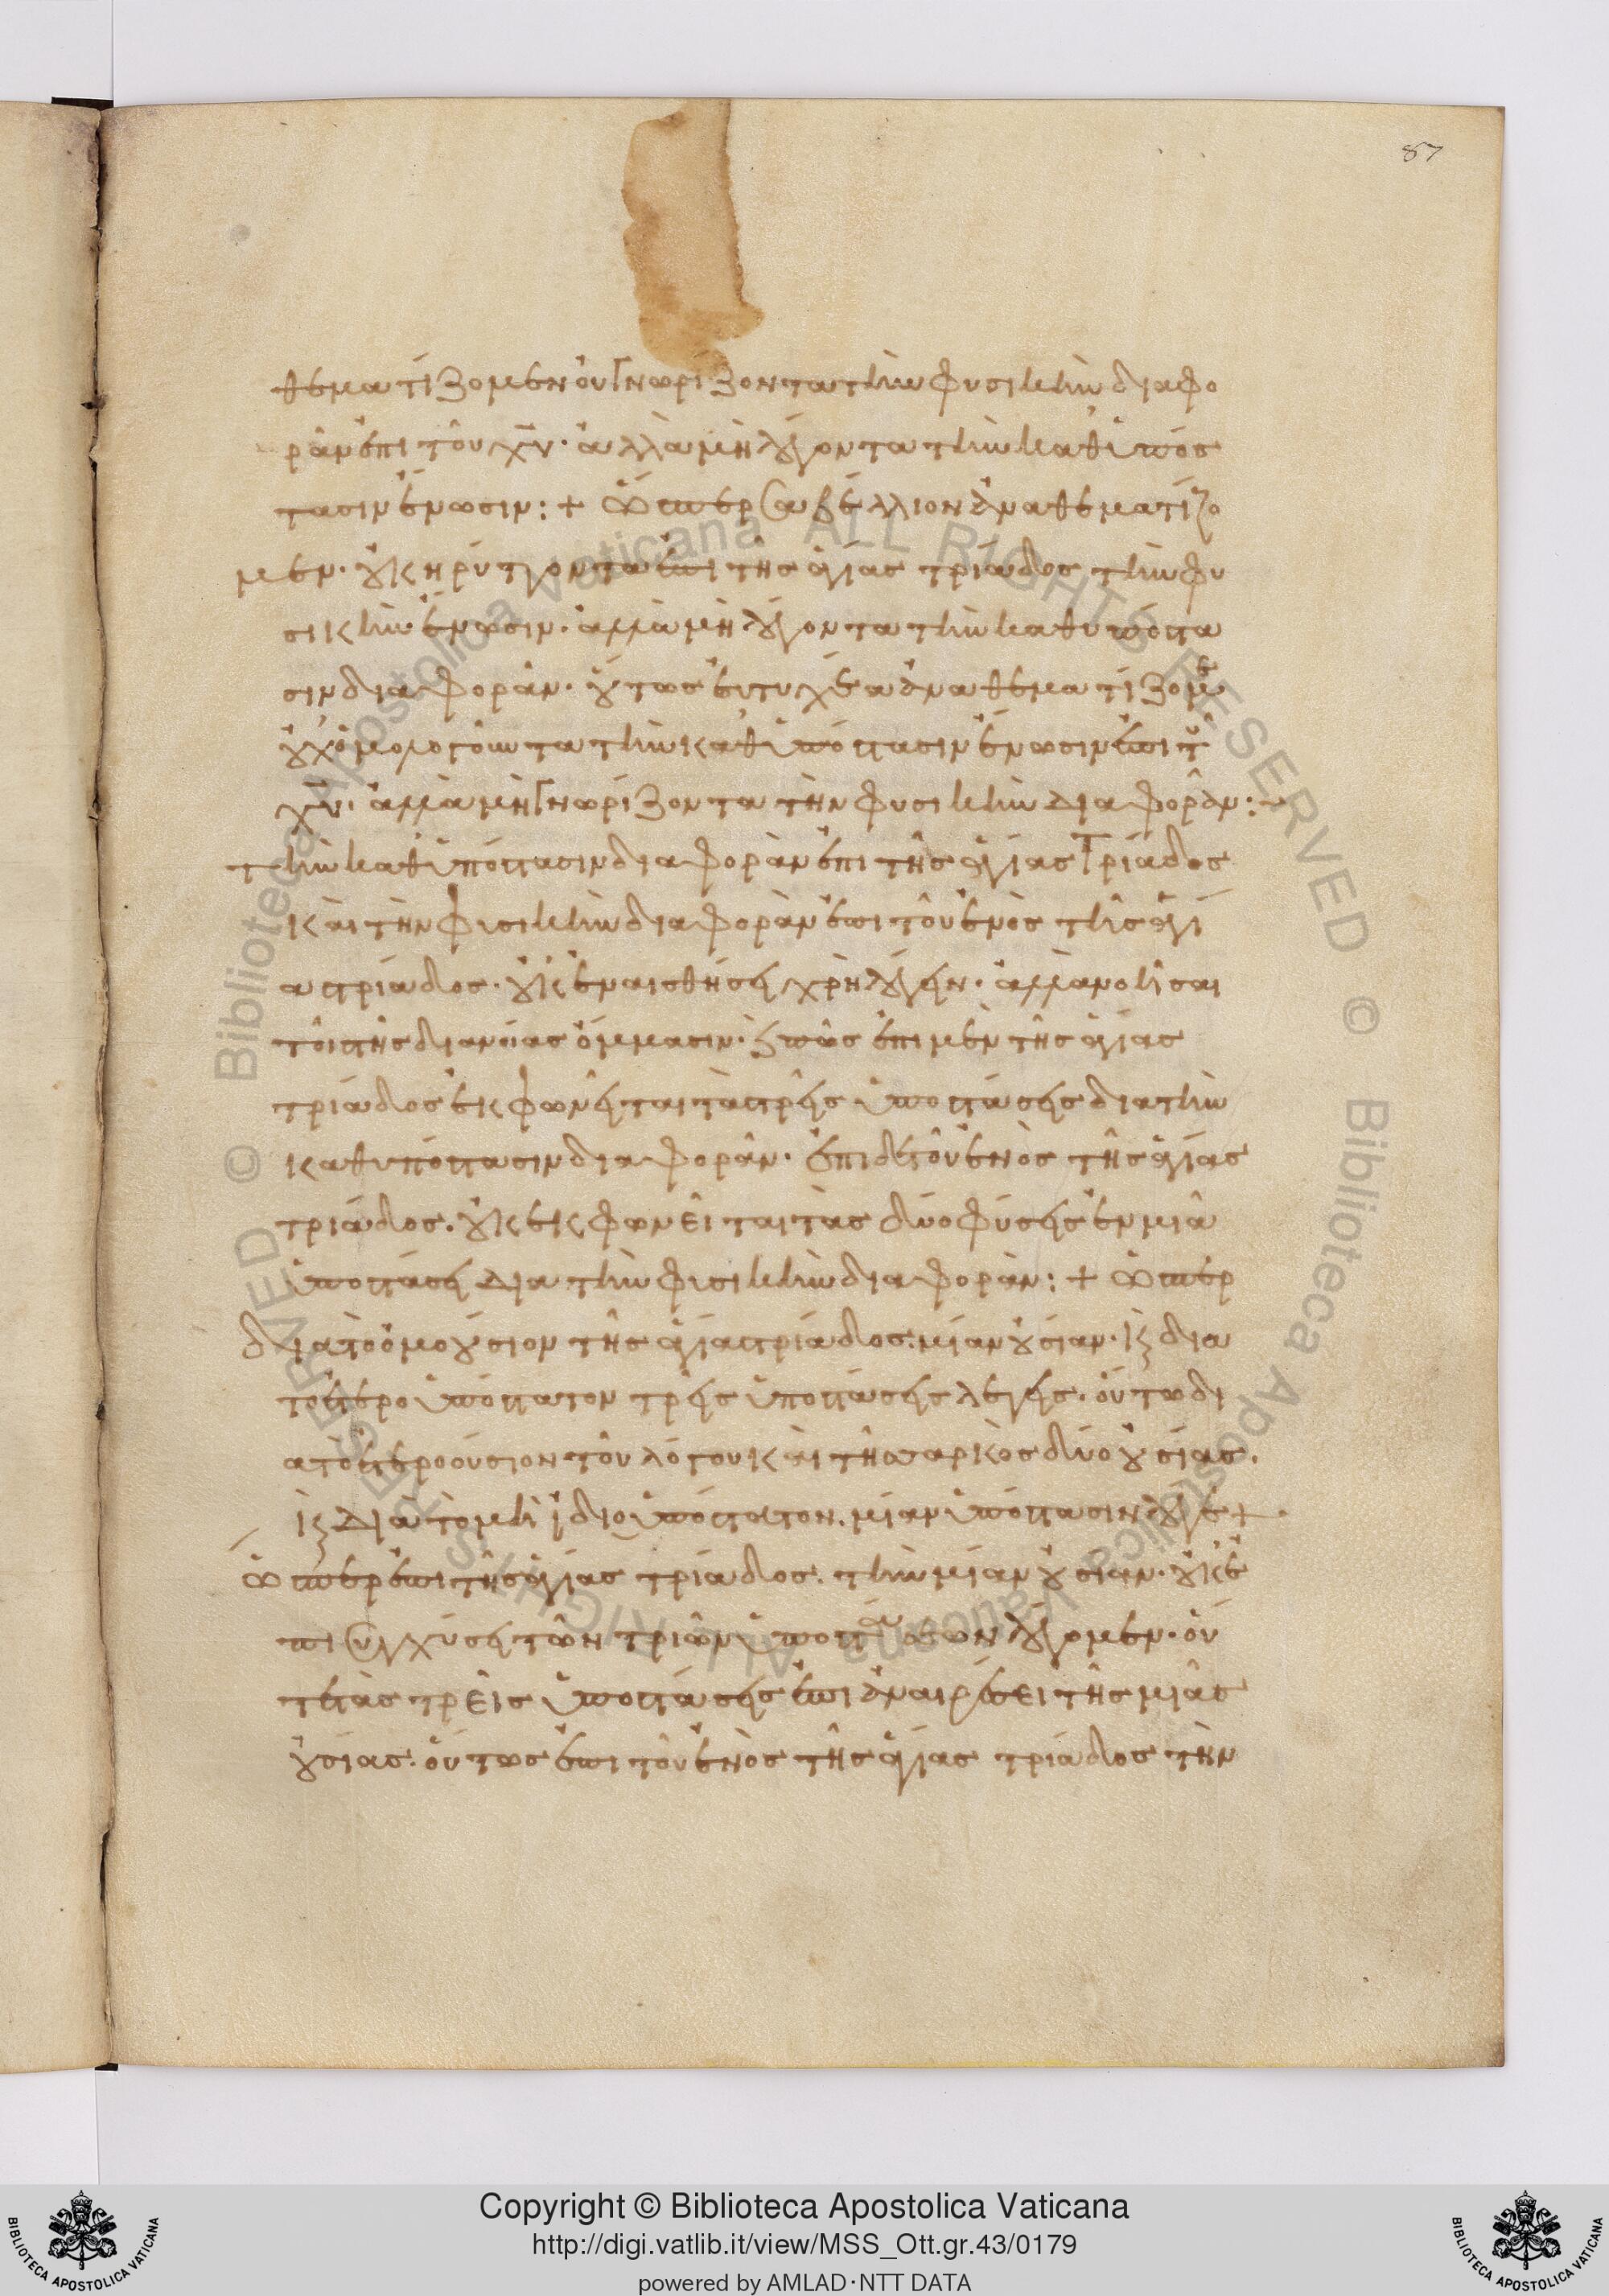 87
θεματίζομεν οὐ γνωρίζοντα τὴν φυσικὴν διαφο
ρὰν ἐπὶ τοῦ χῦ· ἀλλὰ μὴ λέγοντα τὴν καθ' ὑπόσ
τασιν ἕνωσιν: + Ὥσπερ σαβέλλιον ἀναθεματίζο
μεν· οὐ κηρύττοντα ἐπὶ τῆς ἁγίας τριάδος τὴν φυ
σικὴν ἕνωσιν· ἀλλὰ μὴ λέγοντα τὴν καθυπόστα
σιν διαφορὰν· οὕτως εὐτυχέα ἀναθεματίζομε
οὐχ ὁμολογοῦντα τὴν καθ' ὑπόστασιν ἕνωσιν ἐπὶ τοῦ
χῦ· ἀλλὰ μὴ γνωρίζοντα τὴν φυσικὴν διαφορὰν: +
τὴν καθ' ὑπόστασιν διαφορὰν ἐπὶ τῆς ἁγίας τριάδος
καὶ τὴν φυσικὴν διαφορὰν ἐπὶ τοῦ ἑνὸς τῆς ἁγί
ας τριάδος· οὐκ ἐν αἰσθήσει χρὴ λέγειν· ἀλλὰ νοῆσαι
τοῖς τῆς διανοίας ὄμμασιν· καὶ πῶς ἐπὶ μὲν τῆς ἁγίας
τριάδος ἐκφωνεῖται τὰς τρεῖς ὑποστάσεις διὰ τὴν
καθυπόστασιν διαφορὰν· ἐπὶ δὲ τοῦ ἑνὸς τῆς ἁγίας
τριάδος· οὐκ ἐκφωνεῖται τὰς δύο φύσεις ἐν μιᾶ
ὑποστάσει διὰ τὴν φυσικὴν διαφορὰν: + Ὥσπερ
διὰ τὸ ὁμοούσιον τῆς ἁγίας τριάδος· μίαν οὐσίαν· καὶ διὰ
τὸ ἑτεροϋπόστατον τρεῖς ὑποστάσεις λέγεις· οὕτω δι
ὰ τὸ ἑτεροούσιον τοῦ λόγου καὶ τῆς σαρκὸς δύο οὐσίας·
καὶ διὰ τὸ μὴ ἰδιοϋπόστατον· μίαν ὑπόστασιν λέγε +
Ὥσπερ ἐπὶ τῆς ἁγίας τριάδος· τὴν μίαν οὐσίαν· οὐκ ἐ
πὶ συγχύσει τῶν τριῶν ὑποστάσεων λέγομεν· οὔ
τε τὰς τρεῖς ὑποστάσεις ἐπὶ ἀναιρέσει τῆς μιᾶς
οὐσίας· οὕτως ἐπὶ τοῦ ἑνὸς τῆς ἁγίας τριάδος τὴν
Copyright © Biblioteca Apostolica Vaticana
http://digi.vatlib.it/view/MSS_Ott.gr.43/0179
powered by AMLAD·NTT DATA